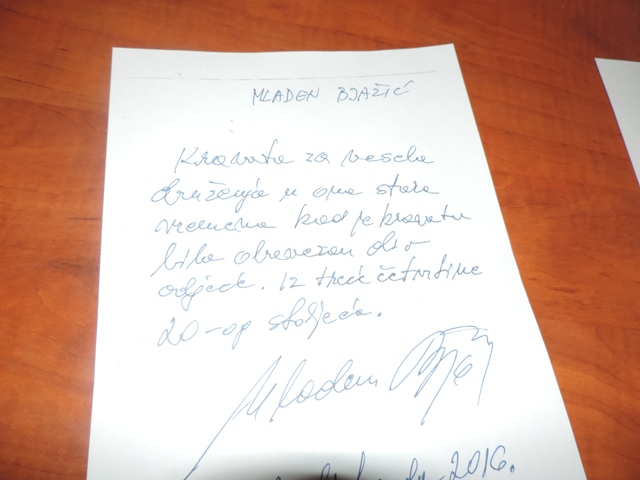 MLADEN BJAŽIĆ
Kravata za vesela
druženja u ona stara
vremena kad je kravata
bila obavezan dio
odjeće. Iz treće četvrtine
20-og stoljeća.
Mladen Bja
2016.